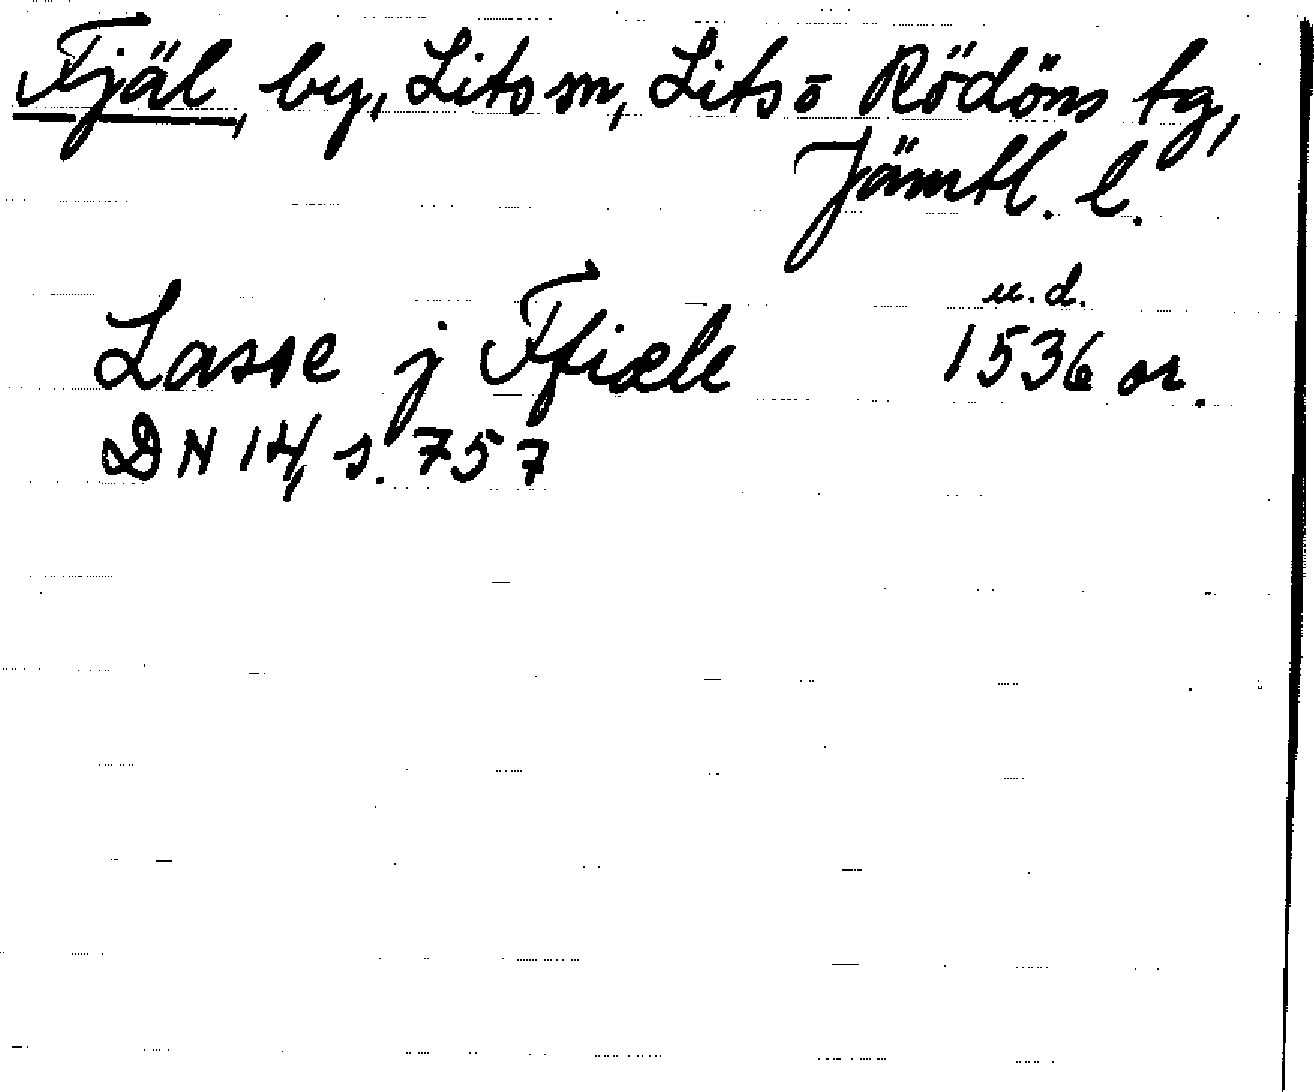 Fjäl, by, Lits sn, Lits o Rödöns tg,
Jämtl. l.
u.d.
Lasse j Ffiæle 1536 or.
DN 14, s. 757